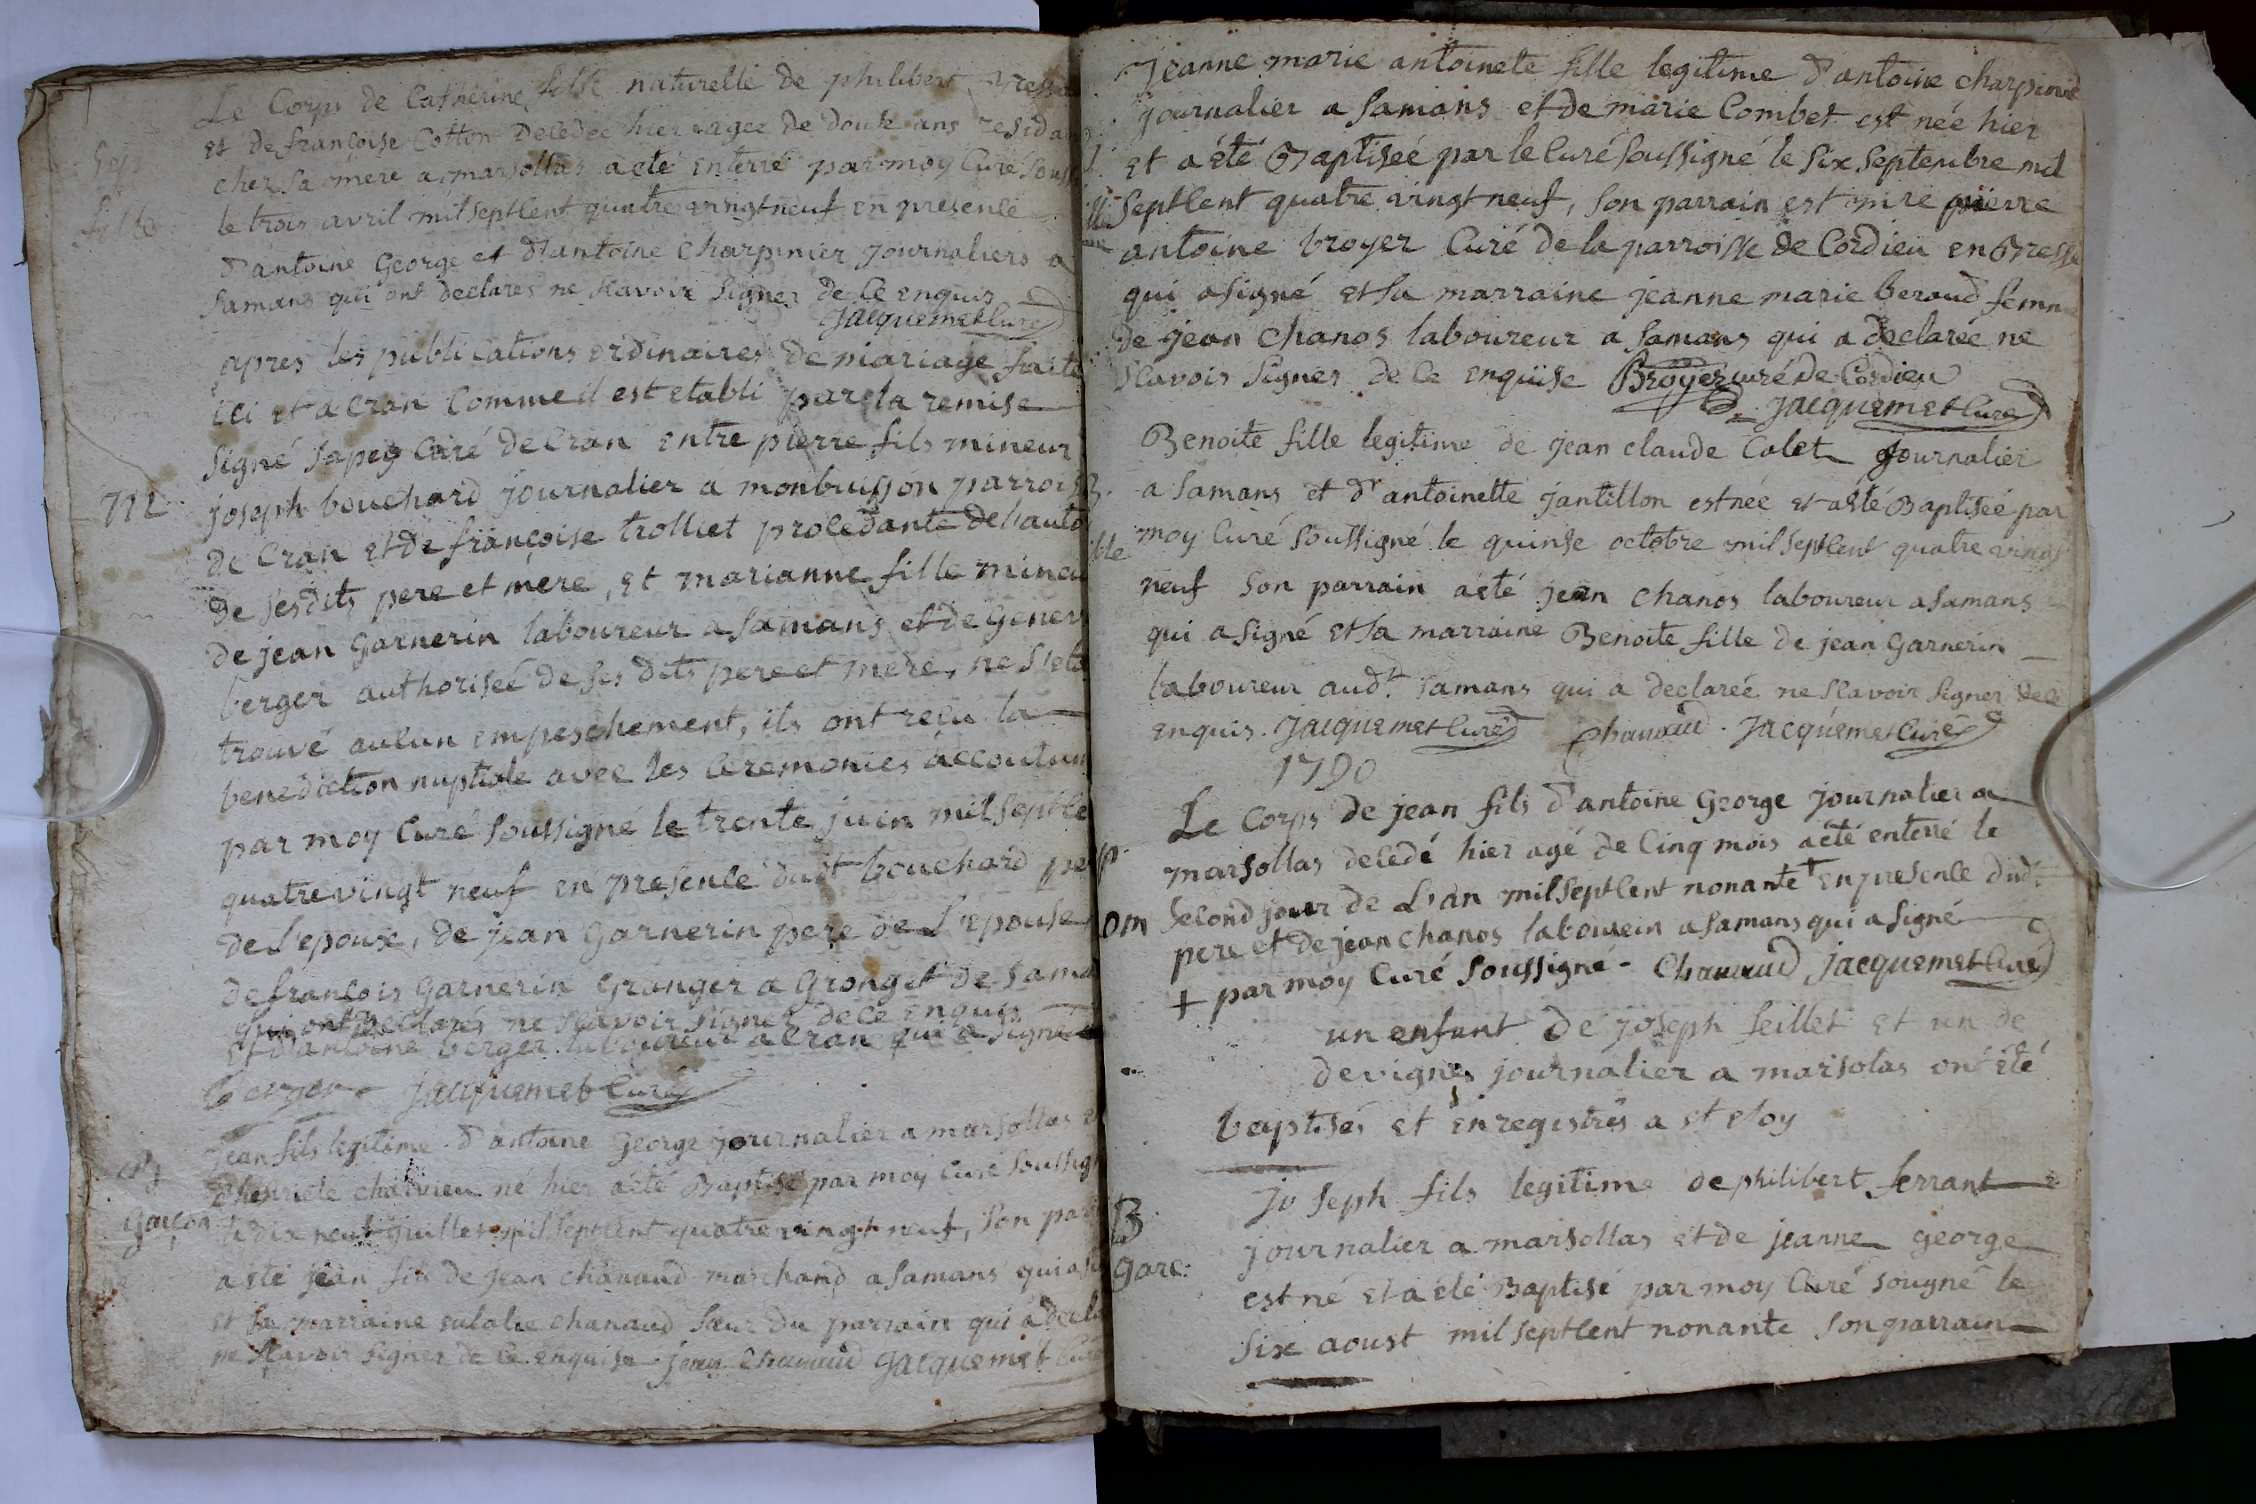 Le Corps de Catherine fille naturelle de philibert
et de françoise Cotton decedée hier agee de douze ans
Sep
cher sa mere a marsollas a eté enterré par moy Curé
fille
le trois avril mil sept cent quatre vingt neuf en presence
d'antoine George et d'antoine Charpinier journaliers a
Samans qui ont declarés ne scavoir signer de ce enquis
jacquemet Curé
apres les publications ordinaires de mariage
ici et a Cran Comme il est etabli par la remise
signé Curé de Cran entre pierre fils mineur
M
joseph bouchard journalier a monbuisson
de Cran et de françoise trolliet procedante de
de sesdits pere et mere, et marianne fille
de jean Garnerin laboureur a Samans et de
berger authorisée de ses dits pere et mere, ne
trouvé aucun empeschement, ils ont reçu la
benediction nuptiale avec les Ceremonies
par moy Curé soussigné le trente juin mil
quatre vingt neuf en presence dudt bouchard
de l'epoux, de jean Garnerin pere de L'epouse
de françois Garnerin Granger a Gronget de
qui ont declarés ne scavoir signer de ce enquis
et d'antoine berger laboureur a Cran qui a signé
berger jacquemet Curé
Jean fils legitime d'antoine George journalier a marsollas
né hier a eté Baptisé par moy Curé
Garçon
le dix neuf juillet mil sept cent quatre vingt neuf, son
a eté jean fils de jean chanaud marchand a Samans
et sa marraine eulalie chanaud sœur du parrain qui a
ne scavoir signer de ce enquise jean Chanaud jacquemet Curé
Jeanne marie antoinete fille legitime d'antoine
journalier a Samans et de marie Combet est née hier
et a été Baptiseé par le Curé soussigné le six septembre mil
sept Cent quatre vingt neuf, son parrain est mre pierre
antoine broyer Curé de la parroisse de Cordieu en Bresse
qui a signé et sa marraine jeanne marie beraud
de jean Chanos laboureur a Samans qui a declarée ne
scavois signer de ce enquise Broyer curé de Cordieu
jacquemet Curé
Benoite fille legitime de jean claude Colet journalier
B.
a Samans et d'antoinette jantillon est née et a eté Baptisée par
moy Curé soussigné le quinse octobre mil sept cent quatre vingt
neuf son parrain a eté jean Chanos laboureur a Samans
qui a signé et sa marraine Benoite fille de jean Garnerin
laboureur audt Samans qui a declareé ne scavoir signer
enquis. jacquemet Curé Chanaud. jacquemet Curé
1790
Le Corps de jean fils d'antoine George journalier a
marsollas decedé hier agé de Cinq mois a été enterré le
second jour de L'an mil sept cent nonante + en presence dudt
pere et de jean Chanos laboureur a Samans qui a signé
+ par moy Curé soussigné - Chanaud jacquemet Curé
un enfant de joseph seillet et un de
devignes journalier a marsolas ont été
baptisés et enregistrés a st eloy
B
joseph fils legitime de philibert ferrant
garc:
journalier a marsollas et de jeanne george
est né et a été Baptisé par moy Curé sougné le
six aoust mil sept cent nonante son parrain